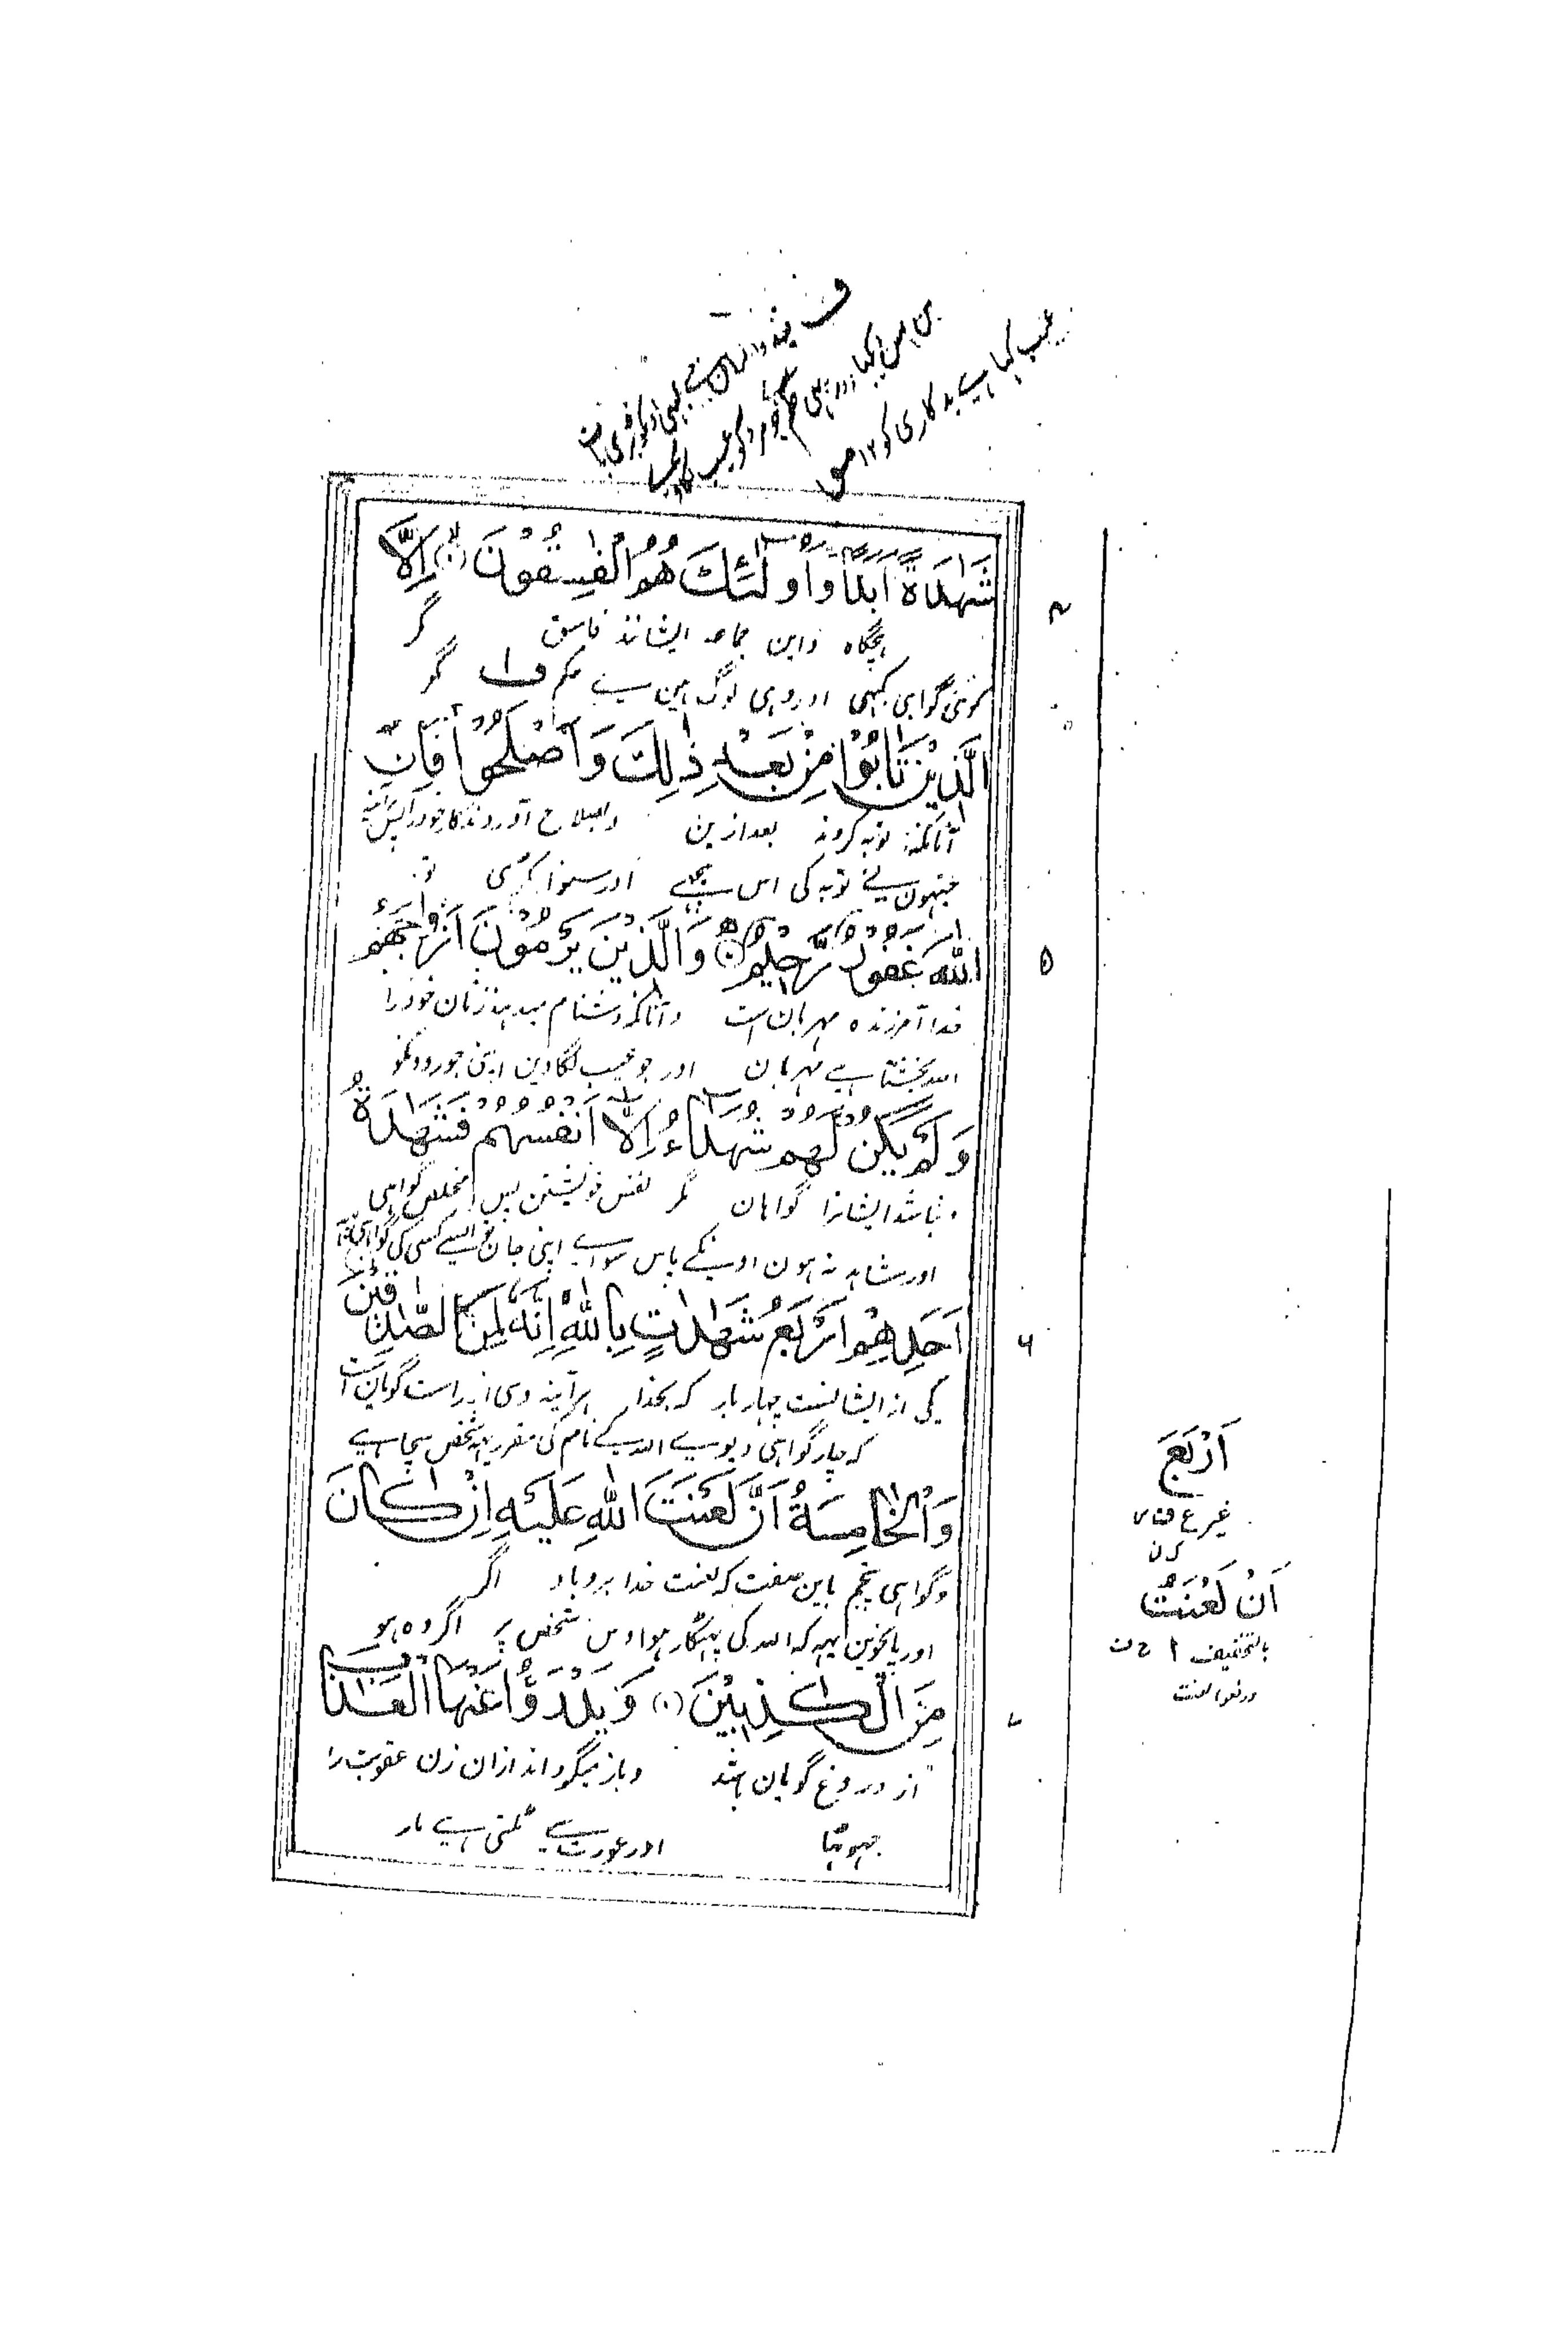 عیب کہا ہے بدکاری کو ۱۲
شَهٰدَةً اَبَدًا وَاُولٰٓئِكَ هُمُ الْفٰسِقُوْنَ اِلَّا
۴
واین جماعه ایشانند فاسق گر
کوئی گواہی کبہی اور وہی لوگ ہین بے حکم ف۱ گر
الَّذِيْنَ تَابُوْا مِنْ بَعْدِ ذٰلِكَ وَاَصْلَحُوْا فَاِنَّ
آنانکه توبه کردند بعد ازین
جنہون نے توبہ کی اس پیچہے اور سنوار پکڑی تو
اللّٰهَ غَفُوْرٌ رَّحِيْمٌ وَالَّذِيْنَ يَرْمُوْنَ اَزْوَاجَهُمْ
۵
خدا آمرزنده مهربان است وآنانکه دشنام میدهند زنان خود را
اللہ بخشتا ہے مہربان اور جو عیب لگاوین اپنی جوروونکو
وَلَمْ يَكُنْ لَّهُمْ شُهَدَآءُ اِلَّا اَنْفُسُهُمْ فَشَهٰدَةُ
ونباشد ایشانرا گواهان گر نفس خویشتن پس گواهی
اور شاہد نہ ہون اونکے پاس سواے اپنی جان کے تو ایسے کسی کی گواہی
اَحَدِهِمْ اَرْبَعُ شَهٰدٰتٍ بِاللّٰهِ اِنَّهٗ لَمِنَ الصّٰدِقِيْنَ
۶
یکی از ایشانست چهار بار که بخدا هرآینه وی از راست گویان است
کہ چار گواہی دیوے اللہ کے نام کی مقرر یہہ شخص سچا ہے
وَالْخَامِسَةُ اَنَّ لَعْنَتَ اللّٰهِ عَلَيْهِ اِنْ كَانَ
وگواهی پنجم باین صفت که لعنت خدا برو باد اگر
اور پانچوین یہہ کہ اللہ کی پہٹکار ہو اوس شخص پر اگر وہ ہو
مِنَ الْكٰذِبِيْنَ وَيَدْرَؤُا عَنْهَا الْعَذَابَ
۷
از دروغ گویان باشد وباز میگرداند ازان زن عقوبت را
جہوٹہا اور عورت سے ٹلتی ہے مار
اَرْبَعَ
غیر
اَنْ لَعْنَتُ
بالتخفیف